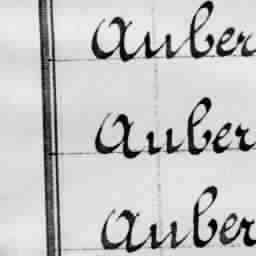 Auber
Auber
Auber